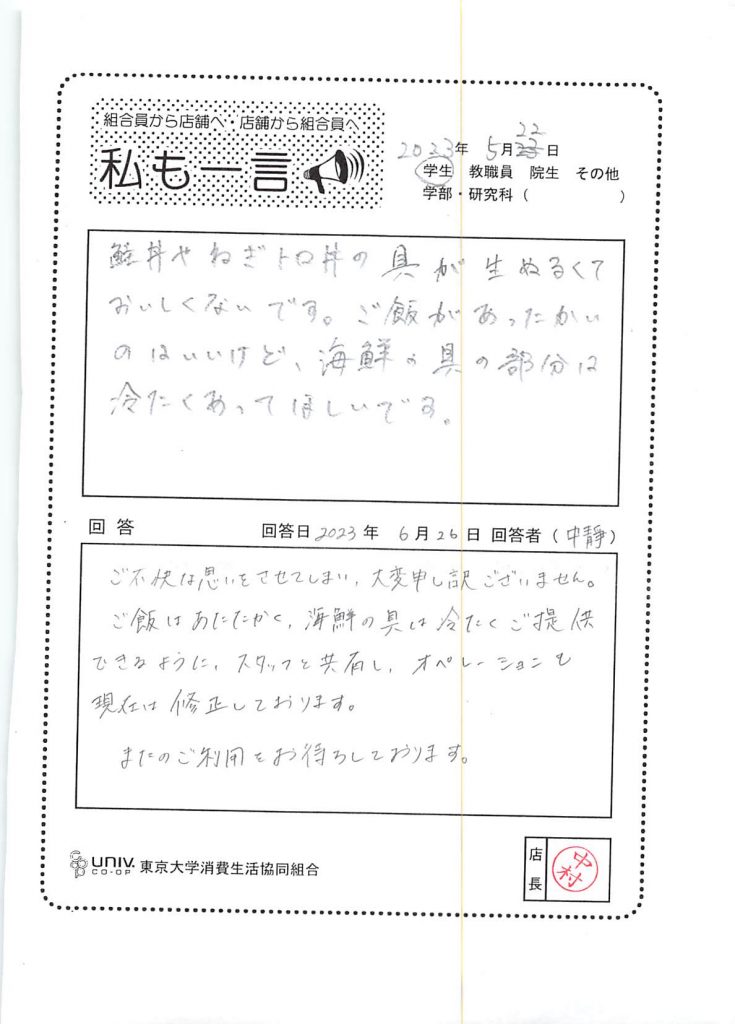 組合員から店舗へ・店舗から組合員へ
私も一言
2023年 5月22日
学生 教職員 院生 その他
学部・研究科 ( )
鮭丼やねぎトロ丼の具が生ぬるくて
おいしくないです。ご飯があったかい
のはいいけど、海鮮の具の部分は
冷たくあってほしいです。
回答 回答日2023年 6月26日 回答者 (中靜)
ご不快な思いをさせてしまい、大変申し訳ございません。
ご飯はあたたかく、海鮮の具は冷たくご提供
できるように、スタッフと共有し、オペレーションも
現在は修正しております。
またのご利用をお待ちしております。
UNIV. CO-OP 東京大学消費生活協同組合
店長 中村